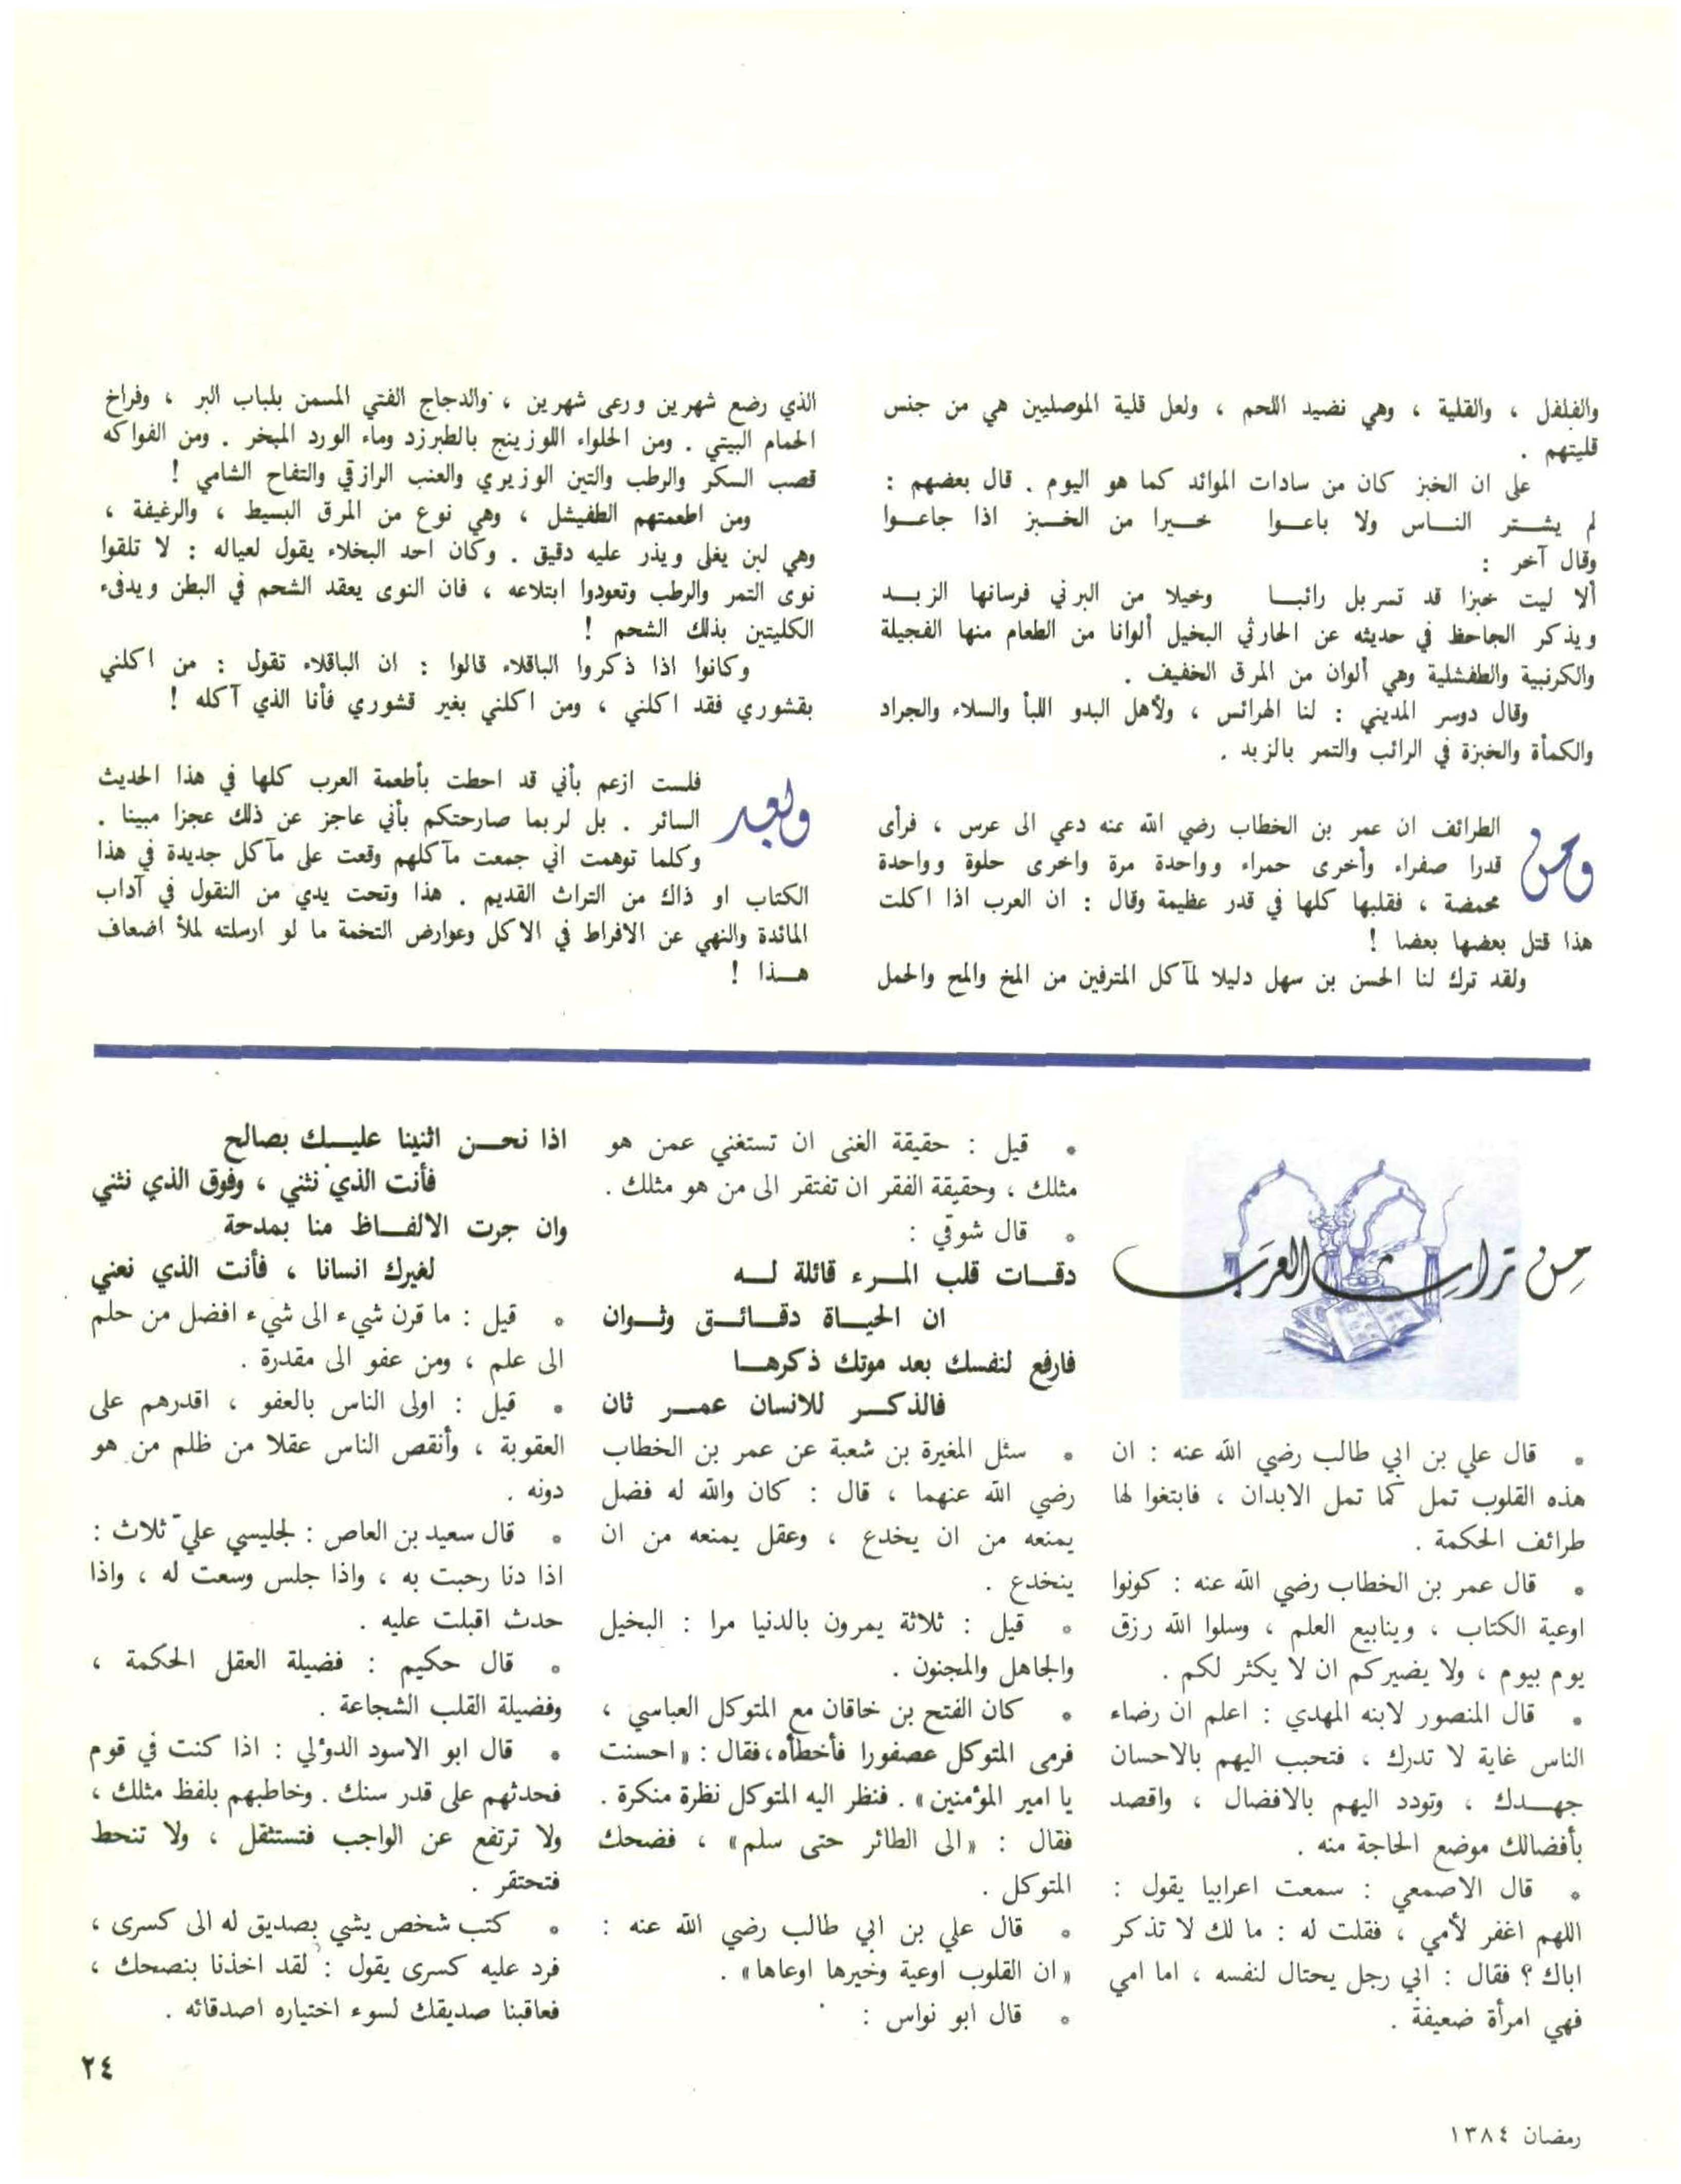 والفلفل ، والقلية ، وهي نضيد اللحم ، ولعل قلية الموصليين هي من جنس
قليتهم .
على ان الخبز كان من سادات الموائد كما هو اليوم . قال بعضهم :
لم يشـــتر النـــاس ولا باعـــوا خـــيرا من الخـــبز اذا جاعـــوا
وقال آخر :
ألا ليت خبزا قد تسربل رائبـــا وخيلا من البرني فرسانها الزبـــد
ويذكر الجاحظ في حديثه عن الحارثي البخيل ألوانا من الطعام منها الفجيلة
والكرنبية والطفشلية وهي ألوان من المرق الخفيف .
وقال دوسر المديني : لنا الهرائس ، ولأهل البدو اللبأ والسلاء والجراد
والكمأة والخبزة في الرائب والتمر بالزبد .
ومن الطرائف ان عمر بن الخطاب رضي الله عنه دعي الى عرس ، فرأى
قدرا صفراء وأخرى حمراء وواحدة مرة واخرى حلوة وواحدة
محمضة ، فقلبها كلها في قدر عظيمة وقال : ان العرب اذا اكلت
هذا قتل بعضها بعضا !
ولقد ترك لنا الحسن بن سهل دليلا لمآكل المترفين من المخ والمح والحمل
الذي رضع شهرين ورعى شهرين ، والدجاج الفتي المسمن بلباب البر ، وفراخ
الحمام البيتي . ومن الحلواء اللوزينج بالطبرزد وماء الورد المبخر . ومن الفواكه
قصب السكر والرطب والتين الوزيري والعنب الرازقي والتفاح الشامي !
ومن اطعمتهم الطفيشل ، وهي نوع من المرق البسيط ، والرغيفة ،
وهي لبن يغلى ويذر عليه دقيق . وكان احد البخلاء يقول لعياله : لا تلقوا
نوى التمر والرطب وتعودوا ابتلاعه ، فان النوى يعقد الشحم في البطن ويدفىء
الكليتين بذلك الشحم !
وكانوا اذا ذكروا الباقلاء قالوا : ان الباقلاء تقول : من اكلني
بقشوري فقد اكلني ، ومن اكلني بغير قشوري فأنا الذي آكله !
وبعد فلست ازعم بأني قد احطت بأطعمة العرب كلها في هذا الحديث
السائر . بل لربما صارحتكم بأني عاجز عن ذلك عجزا مبينا .
وكلما توهمت اني جمعت مآكلهم وقعت على مآكل جديدة في هذا
الكتاب او ذاك من التراث القديم . هذا وتحت يدي من النقول في آداب
المائدة والنهي عن الافراط في الاكل وعوارض التخمة ما لو ارسلته لملأ اضعاف
هـــذا !
من تراث العرب
• قال علي بن ابي طالب رضي الله عنه : ان
هذه القلوب تمل كما تمل الابدان ، فابتغوا لها
طرائف الحكمة .
• قال عمر بن الخطاب رضي الله عنه : كونوا
اوعية الكتاب ، وينابيع العلم ، وسلوا الله رزق
يوم بيوم ، ولا يضيركم ان لا يكثر لكم .
• قال المنصور لابنه المهدي : اعلم ان رضاء
الناس غاية لا تدرك ، فتحبب اليهم بالاحسان
جهـــدك ، وتودد اليهم بالافضال ، واقصد
بأفضالك موضع الحاجة منه .
• قال الاصمعي : سمعت اعرابيا يقول :
اللهم اغفر لأمي ، فقلت له : ما لك لا تذكر
اباك ؟ فقال : ابي رجل يحتال لنفسه ، اما امي
فهي امرأة ضعيفة .
• قيل : حقيقة الغنى ان تستغني عمن هو
مثلك ، وحقيقة الفقر ان تفتقر الى من هو مثلك .
• قال شوقي :
دقـــات قلب المـــرء قائلة لـــه
ان الحيـــاة دقـــائـــق وثـــوان
فارفع لنفسك بعد موتك ذكرهـــا
فالذكـــر للانسان عمـــر ثان
• سئل المغيرة بن شعبة عن عمر بن الخطاب
رضي الله عنهما ، قال : كان والله له فضل
يمنعه من ان يخدع ، وعقل يمنعه من ان
ينخدع .
• قيل : ثلاثة يمرون بالدنيا مرا : البخيل
والجاهل والمجنون .
• كان الفتح بن خاقان مع المتوكل العباسي ،
فرمى المتوكل عصفورا فأخطأه، فقال : «احسنت
يا امير المؤمنين» . فنظر اليه المتوكل نظرة منكرة .
فقال : «الى الطائر حتى سلم» ، فضحك
المتوكل .
• قال علي بن ابي طالب رضي الله عنه :
«ان القلوب اوعية وخيرها اوعاها» .
• قال ابو نواس :
اذا نحـــن اثنينا عليـــك بصالح
فأنت الذي نثني ، وفوق الذي نثني
وان جرت الالفـــاظ منا بمدحة
لغيرك انسانا ، فأنت الذي نعني
• قيل : ما قرن شيء الى شيء افضل من حلم
الى علم ، ومن عفو الى مقدرة .
• قيل : اولى الناس بالعفو ، اقدرهم على
العقوبة ، وأنقص الناس عقلا من ظلم من هو
دونه .
• قال سعيد بن العاص : لجليسي عليّ ثلاث :
اذا دنا رحبت به ، واذا جلس وسعت له ، واذا
حدث اقبلت عليه .
• قال حكيم : فضيلة العقل الحكمة ،
وفضيلة القلب الشجاعة .
• قال ابو الاسود الدؤلي : اذا كنت في قوم
فحدثهم على قدر سنك . وخاطبهم بلفظ مثلك ،
ولا ترتفع عن الواجب فتستثقل ، ولا تنحط
فتحتقر .
• كتب شخص يشي بصديق له الى كسرى ،
فرد عليه كسرى يقول : لقد اخذنا بنصحك ،
فعاقبنا صديقك لسوء اختياره اصدقائه .
٢٤
رمضان ١٣٨٤